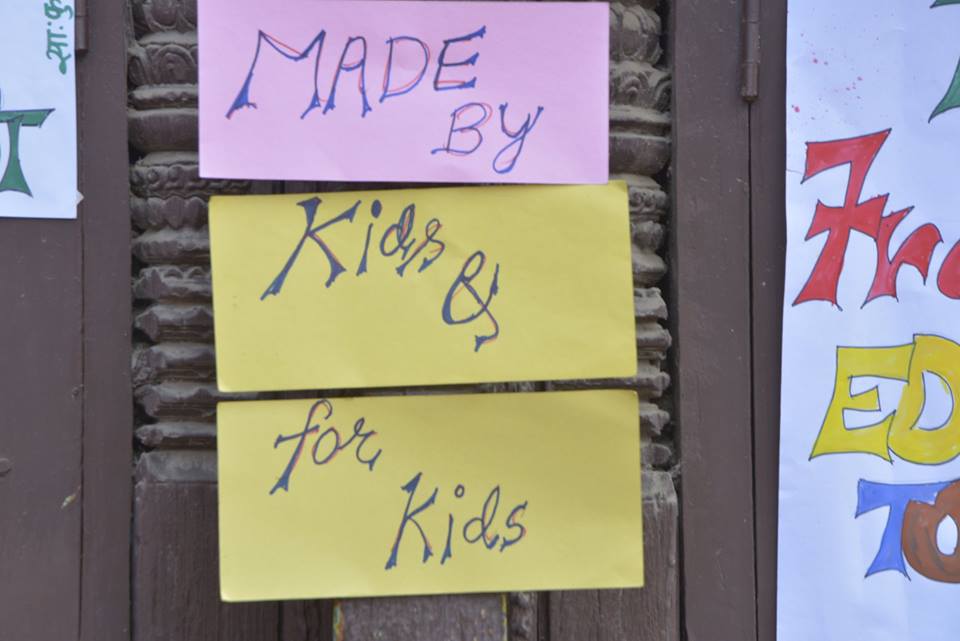 MADE
BY
Kids
&
for
Kids
TO